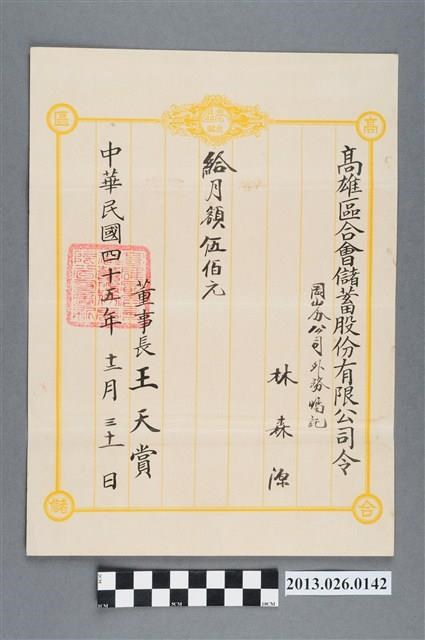 高雄區合會儲蓄股份有限公司令
岡山分公司外務囑記
林森源
給月額伍佰元
董事長王天賞
中華民國四十五年十二月三十一日
高
區
合
儲
5CM
10CM
2013.026.0142